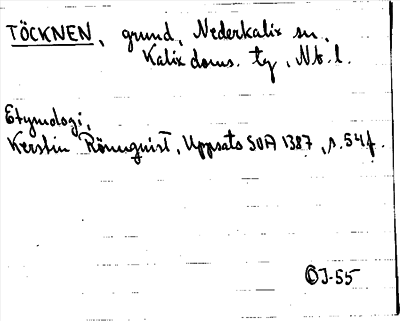 TÖCKNEN, grund, Nederkalix sn,
Kalix doms. tg, Nb. l.
Etymologi,
Kerstin Rönnquist, Uppsats SOA 1387, s. 54f.
ÖJ-55